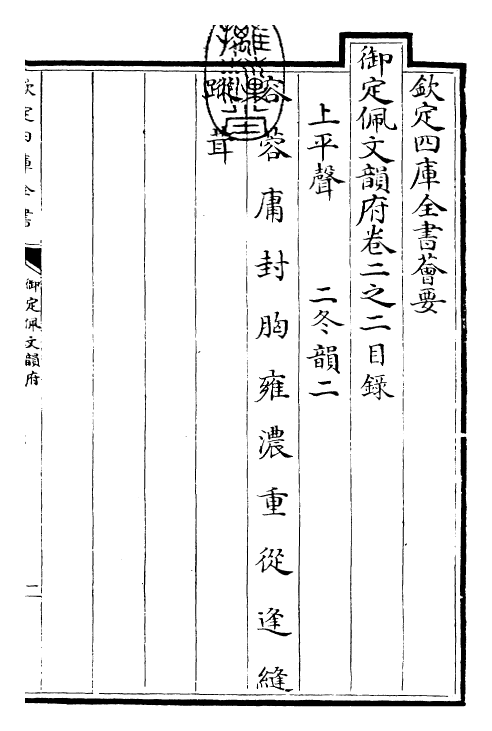 欽定四庫全書薈要
御定佩文韻府卷二之二目錄
上平聲　二冬韻二
容 蓉 庸 封 胸 雍 濃 重 從 逢 縫
蹤 茸
欽定四庫全書
御定佩文韻府
一